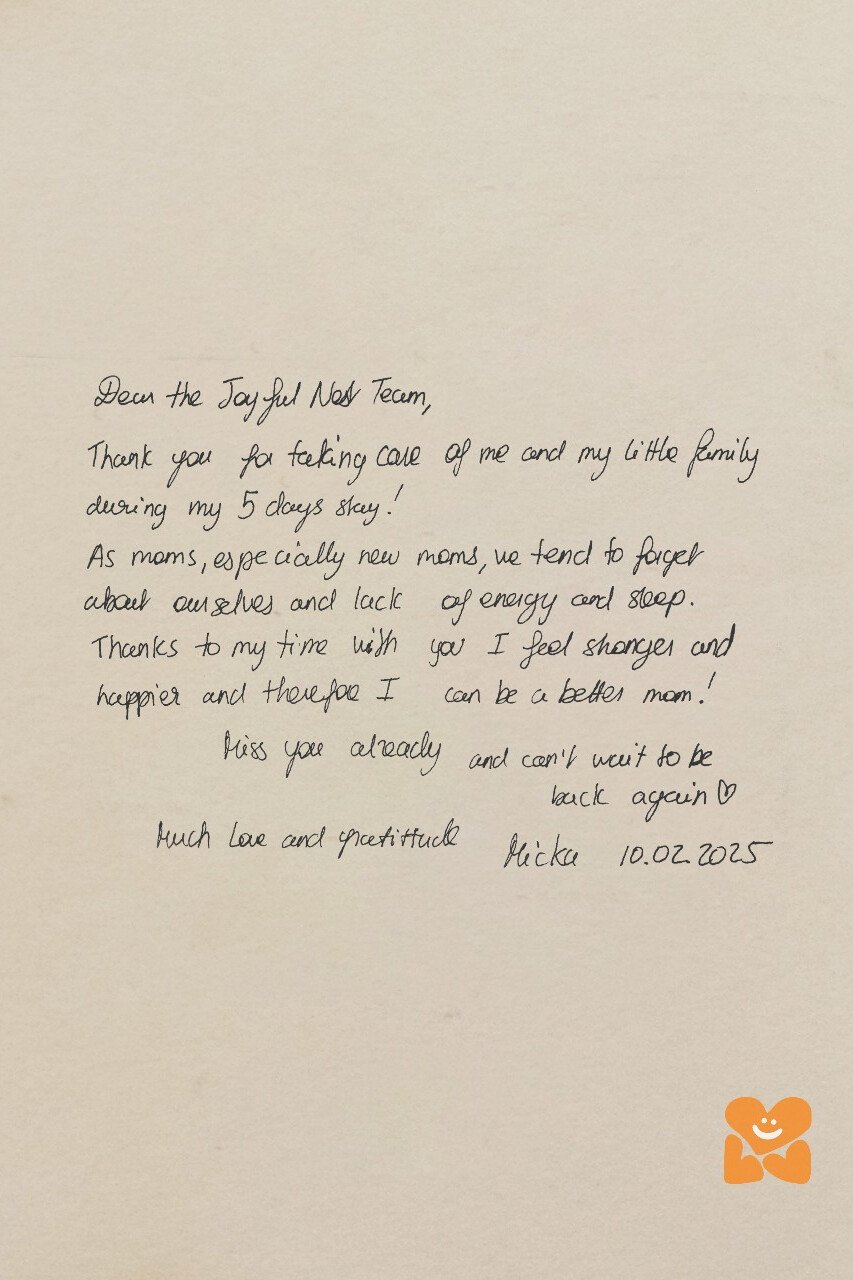 Dear the Joyful Nest Team,
Thank you for taking care of me and my little family
during my 5 days stay!
As moms, especially new moms, we tend to forget
about ourselves and lack of energy and sleep.
Thanks to my time with you I feel stronger and
happier and therefore I can be a better mom!
Miss you already and can't wait to be
back again♡
Much Love and gratittude Micka 10.02.2025